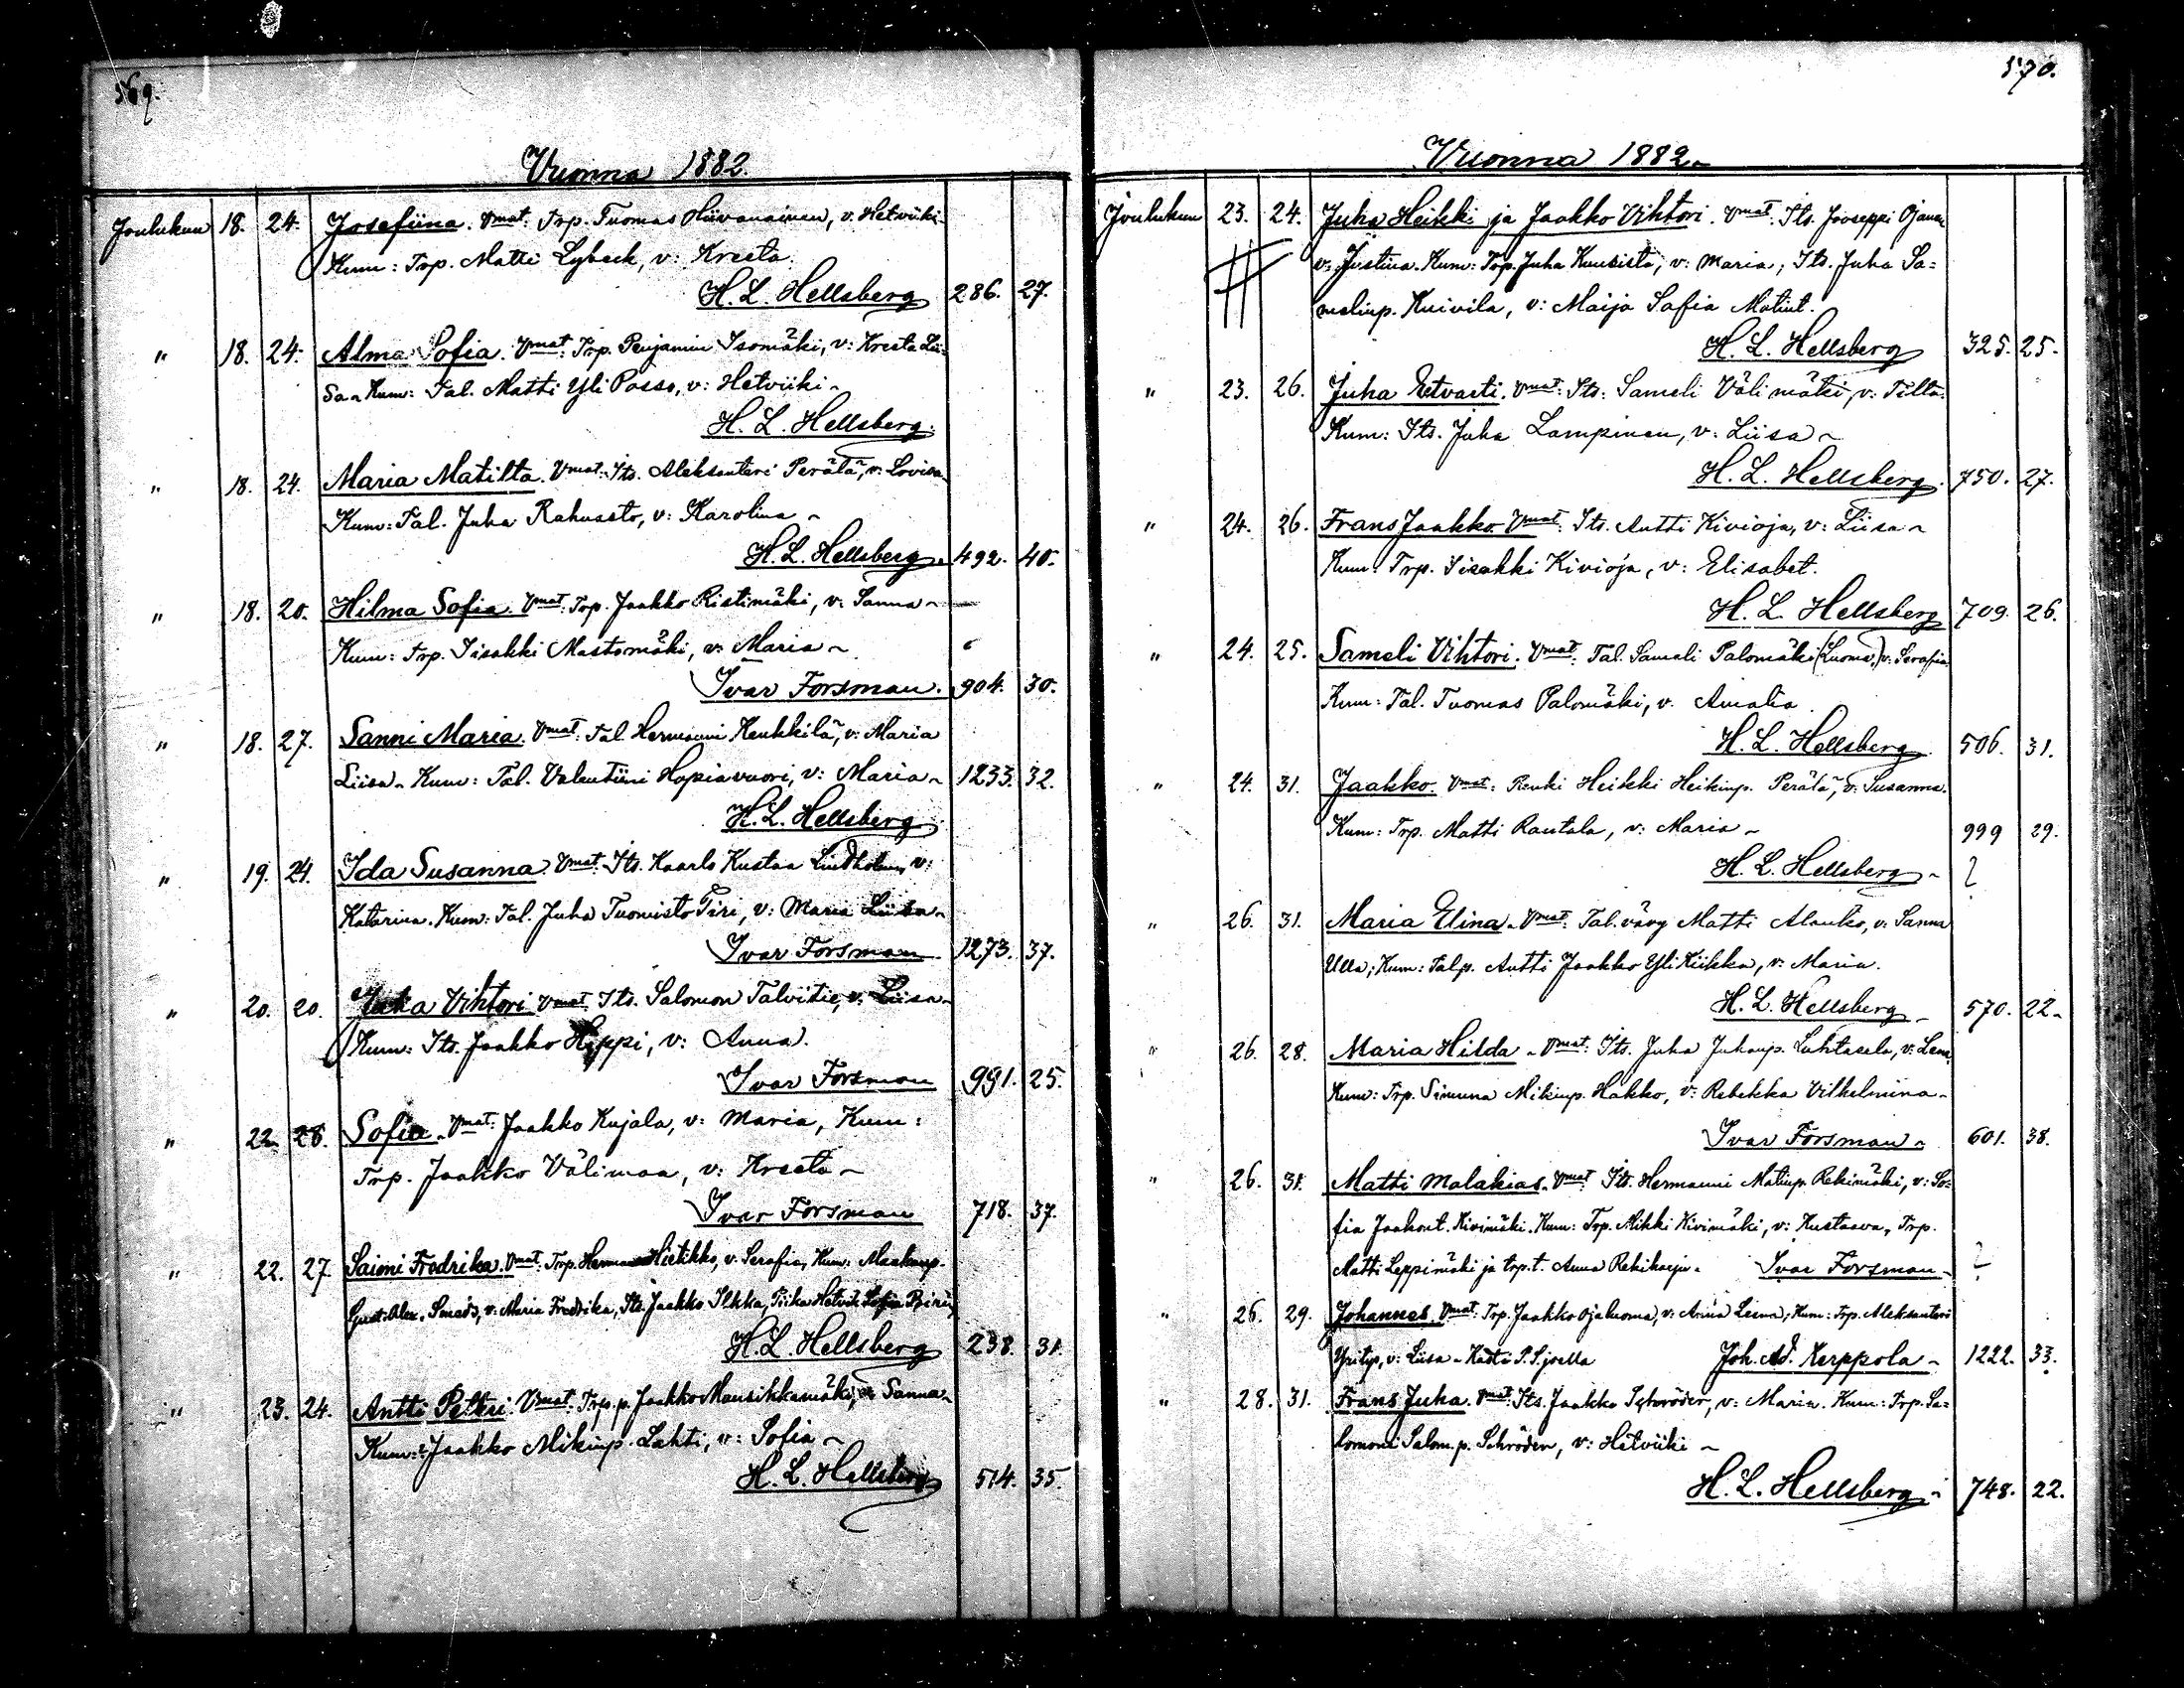 569.
Vuonna 1882.
Joulukun 18. 24. Josefiina. Vmat: Trp. Tuomas Hiivanainen, v: Hetviiki.
Kum: Trp. Matti Lybeck, v: Kreeta.
H. L. Hellsberg 286. 27.
" 18. 24. Alma Sofia. Vmat: Trp. Penjamin Isomäki, v: Kreeta Lii-
sa. Kum: Tal. Matti Yli Passo, v: Hetviiki
H. L. Hellsberg.
" 18. 24. Maria Matilta. Vmat: Its. Aleksanteri Perälä, v: Lovisa.
Kum: Tal. Juha Rahnasto, v: Karolina
H. L. Hellsberg. 492. 40.
" 18. 20. Hilma Sofia. Vmat: Trp. Jaakko Ristimäki, v: Sanna
Kum: Trp. Iisakki Mastomäki, v: Maria
Ivar Forsman. 904. 30.
" 18. 27. Sanni Maria. Vmat: Tal. Hermanni Kenkkilä, v: Maria
Liisa. Kum: Tal. Valentiini Hapiavuori, v: Maria 1233. 32.
H. L. Hellsberg
" 19. 24. Ida Susanna. Vmat: Its. Kaarlo Kustaa Lindholm, v:
Katarina. Kum: Tal. Juha Tuomisto Tiri, v: Maria Liisa
Ivar Forsman 1273. 37.
" 20. 20. Juha Vihtori Vmat. Its. Salomon Talvitie, v: Liisa
Kum: Its. Jaakko Hippi, v: Anna.
Ivar Forsman 991. 25.
" 22. 28. Sofia. Vmat: Jaakko Kujala, v: Maria, Kum:
Trp. Jaakko Välimaa, v: Kreeta
Ivar Forsman 718. 37.
" 22. 27. Saimi Fredrika. Vmat. Trp. Herman Hietikko, v: Serafia, Kum: Maakaup.
Gust. Alex. Smeds, v: Maria Fredrika, Its. Jaakko Ilkka, Piika Hetvik Sofia
H. L. Hellsberg 238. 31.
" 23. 24. Antti Petteri Vmat. Trp. p. Jaakko Mansikkamäki, v: Sanna
Kum: Jaakko Mikinp. Lahti, v: Sofia
H. L. Hellsberg 514. 35.
570.
Vuonna 1882.
Joulukun 23. 24. Juha Heikki ja Jaakko Vihtori. Vmat: Its. Jooseppi Ojanen
v: Justina. Kum: Trp. Juha Kuusisto, v: Maria, Its. Juha Sa=
melinp. Knivila, v: Maija Sofia Matint.
H. L. Hellsberg 325. 25.
" 23. 26. Juha Etvarti. Vmat: Its. Sameli Välimäki, v: Tilta.
Kum: Its. Juha Lampinen, v: Liisa
H. L. Hellsberg. 750. 27.
" 24. 26. Frans Jaakko. Vmat: Its. Antti Kivioja, v: Liisa
Kum: Trp. Iisakki Kivioja, v: Elisabet.
H. L. Hellsberg 709. 26.
" 24. 25. Sameli Vihtori. Vmat: Tal. Sameli Palomäki (Luoma) v: Serafia
Kum: Tal. Tuomas Palomäki, v. Amalia.
H. L. Hellsberg 506. 31.
" 24. 31. Jaakko. Vmat: Renki Heikki Heikinp. Perälä, v: Susanna.
Kum: Trp. Matti Rautala, v: Maria 999 29.
H. L. Hellsberg ?
" 26. 31. Maria Elina. Vmat: Tal. vävy Matti Alanko, v: Sanna
Ulla; Kum: Talp. Antti Jaakko Yli Kiikka, v: Maria.
H. L. Hellsberg 570. 22.
" 26. 28. Maria Hilda. Vmat: Its. Juha Juhanp. Luhtasela, v: Lena
Kum: Trp. Simuna Mikinp. Hakko, v: Rebekka Vilhelmina
Ivar Forsman 601. 38.
" 26. 31. Matti Malakias. Vmat: Its. Hermanni Matinp. Rekimäki, v: So=
fia Jaakont. Kivimäki. Kum: Trp. Mikki Kivimäki, v: Kustaava, Trp.
Matti Leppimäki ja trp. t. Anna Rekikarju. Ivar Forsman ?
" 26. 29. Johannes. Vmat: Trp. Jaakko Ojaluoma, v: Anna Leena; Kum: Trp. Aleksanteri
v: Liisa Joh. Ad. Kerppola 1222. 33.
" 28. 31. Frans Juha. Vmat: Its. Jaakko Schröder, v: Maria. Kum: Trp. Sa=
lomoni Salom. p. Schröder, v: Hetviiki
H. L. Hellsberg 748. 22.